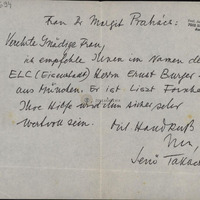 Frau Dr Margit Prahács:
Verehrte Gnädige Frau,
ich empfehle Ihnen im Namen des
ELC (Eisenstadt) Herrn Ernst Burger
aus München. Er ist Liszt
Ihre Hilfe wird ihm sicher sehr
wertvoll sein.
Mit Handkuß
Ihr
Jenö Takács